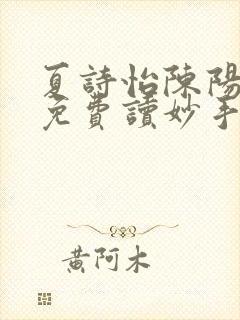 夏詩怡陳陽
免費讀妙手
黃阿木